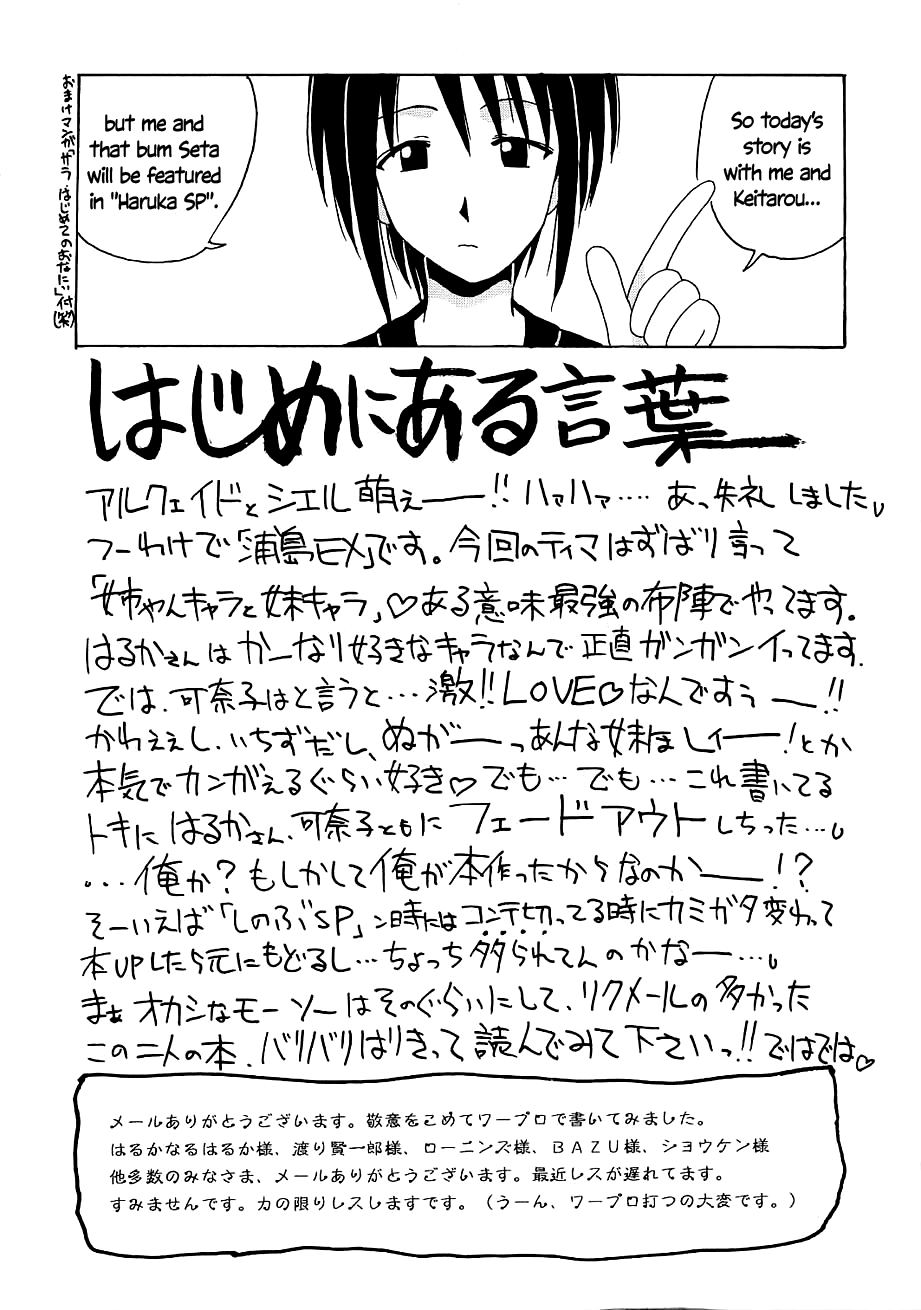 So today's
story is
with me and
Keitarou...
but me and
that bum Seta
will be featured
in "Haruka SP".
おまけマンガ「サラ はじめてのおなにい」付(笑)
はじめにある言葉
アルクェイドとシエル萌えー!! ハァハァ.... あっ失礼しました
つーわけで「浦島EX」です。今回のティマはずばり言って
「姉ちゃんキャラと妹キャラ」♡ある意味最強の布陣でやってます。
はるかさんはかーなり好きなキャラなんで正直ガンガンイってます.
では、可奈子はと言うと...激!!LOVE♡なんですぅー!!
かわええし、いちずだし、ぬがーっあんな妹ほしィー!とか
本気でカンがえるぐらい好き♡でも...でも...これ書いてる
トキにはるかさん、可奈子ともにフェードアウトしちった...
...俺か?もしかして俺が本作ったからなのかー!?
そーいえば「しのぶSP」ン時にはコンテ切ってる時にカミガタ変わって
本UPしたら元にもどるし...ちょっち多られてんのかなー...
まぁオカシなモーソーはそのぐらいにして、リクメールの多かった
この二人の本、バリバリはりきって読んでみて下さいっ!!ではでは♡
メールありがとうございます。敬意をこめてワープロで書いてみました。
はるかなるはるか様、渡り賢一郎様、ローニンズ様、BAZU様、ショウケン様
他多数のみなさま、メールありがとうございます。最近レスが遅れてます。
すみませんです。力の限りレスしますです。(うーん、ワープロ打つの大変です。)